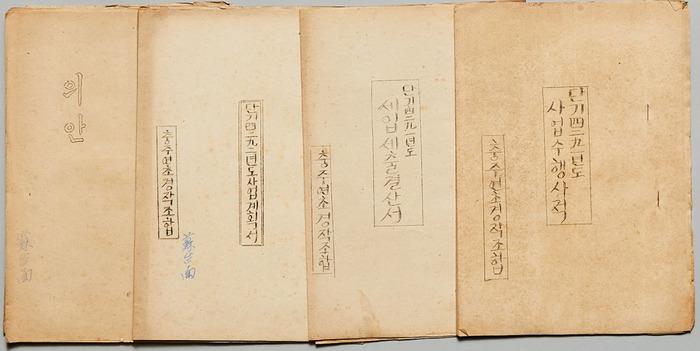 의안
蘇台面
단기四二九二년도사업계획서
충주연초경작조합
蘇台面
단기四二九一년도
세입세출결산서
충주연초경작조합
단기四二九一년도
사업수행사적
충주연초경작조합